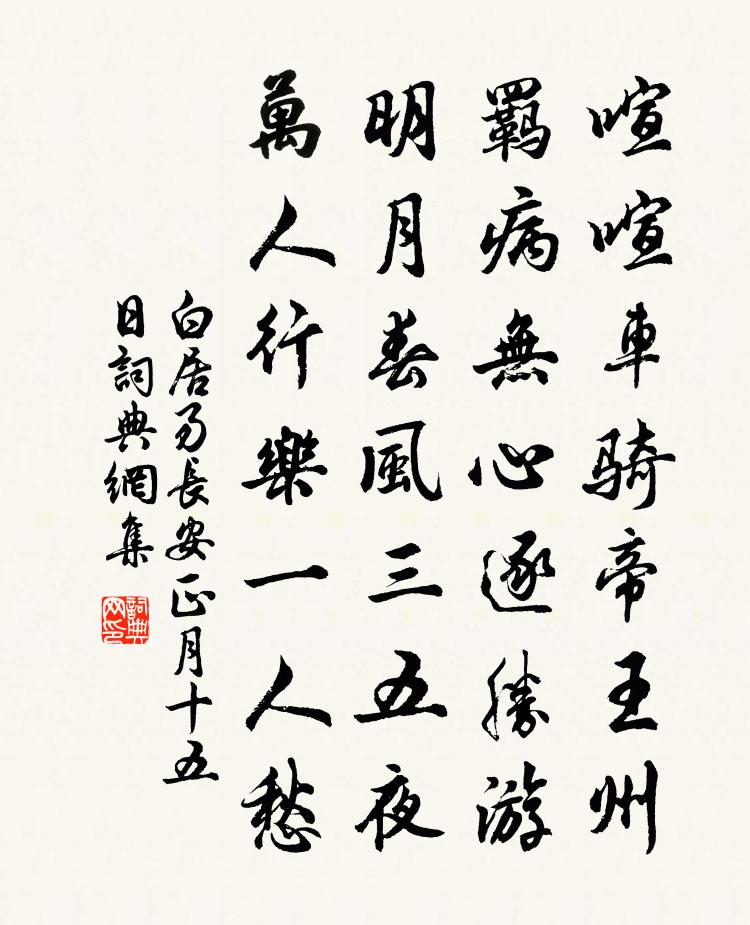 喧喧車騎帝王州
羇病無心逐勝游
明月春風三五夜
萬人行樂一人愁
白居易長安正月十五
日詞典網集
詞典网印